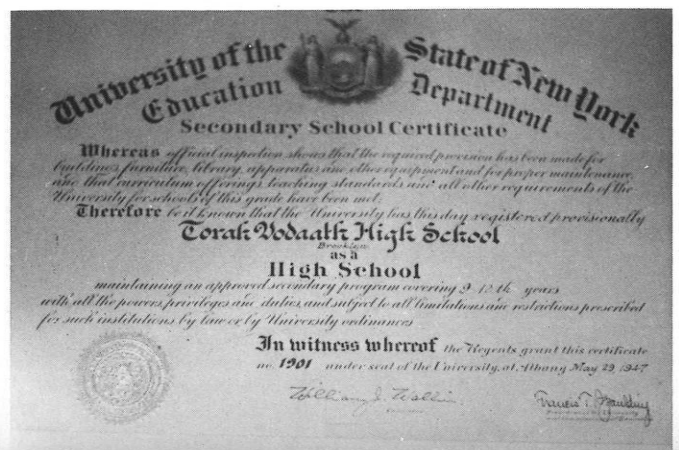 University of the State of New York
Education Department
Secondary School Certificate
Whereas official inspection shows that the required provision has been made for
buildings, furniture, library, apparatus and other equipment and for proper maintenance,
and that curriculum offerings, teaching standards and all other requirements of the
University for schools of this grade have been met;
Therefore be it known that the University has this day registered provisionally
Torah Vodaath High School
Brooklyn
as a
High School
maintaining an approved secondary program covering 9-12th years
with all the powers, privileges and duties, and subject to all limitations and restrictions prescribed
for such institutions by law or by University ordinances
In witness whereof the Regents grant this certificate
no. 1901 under seal of the University, at Albany May 29, 1947
William J. Wallin
Francis T. Spaulding